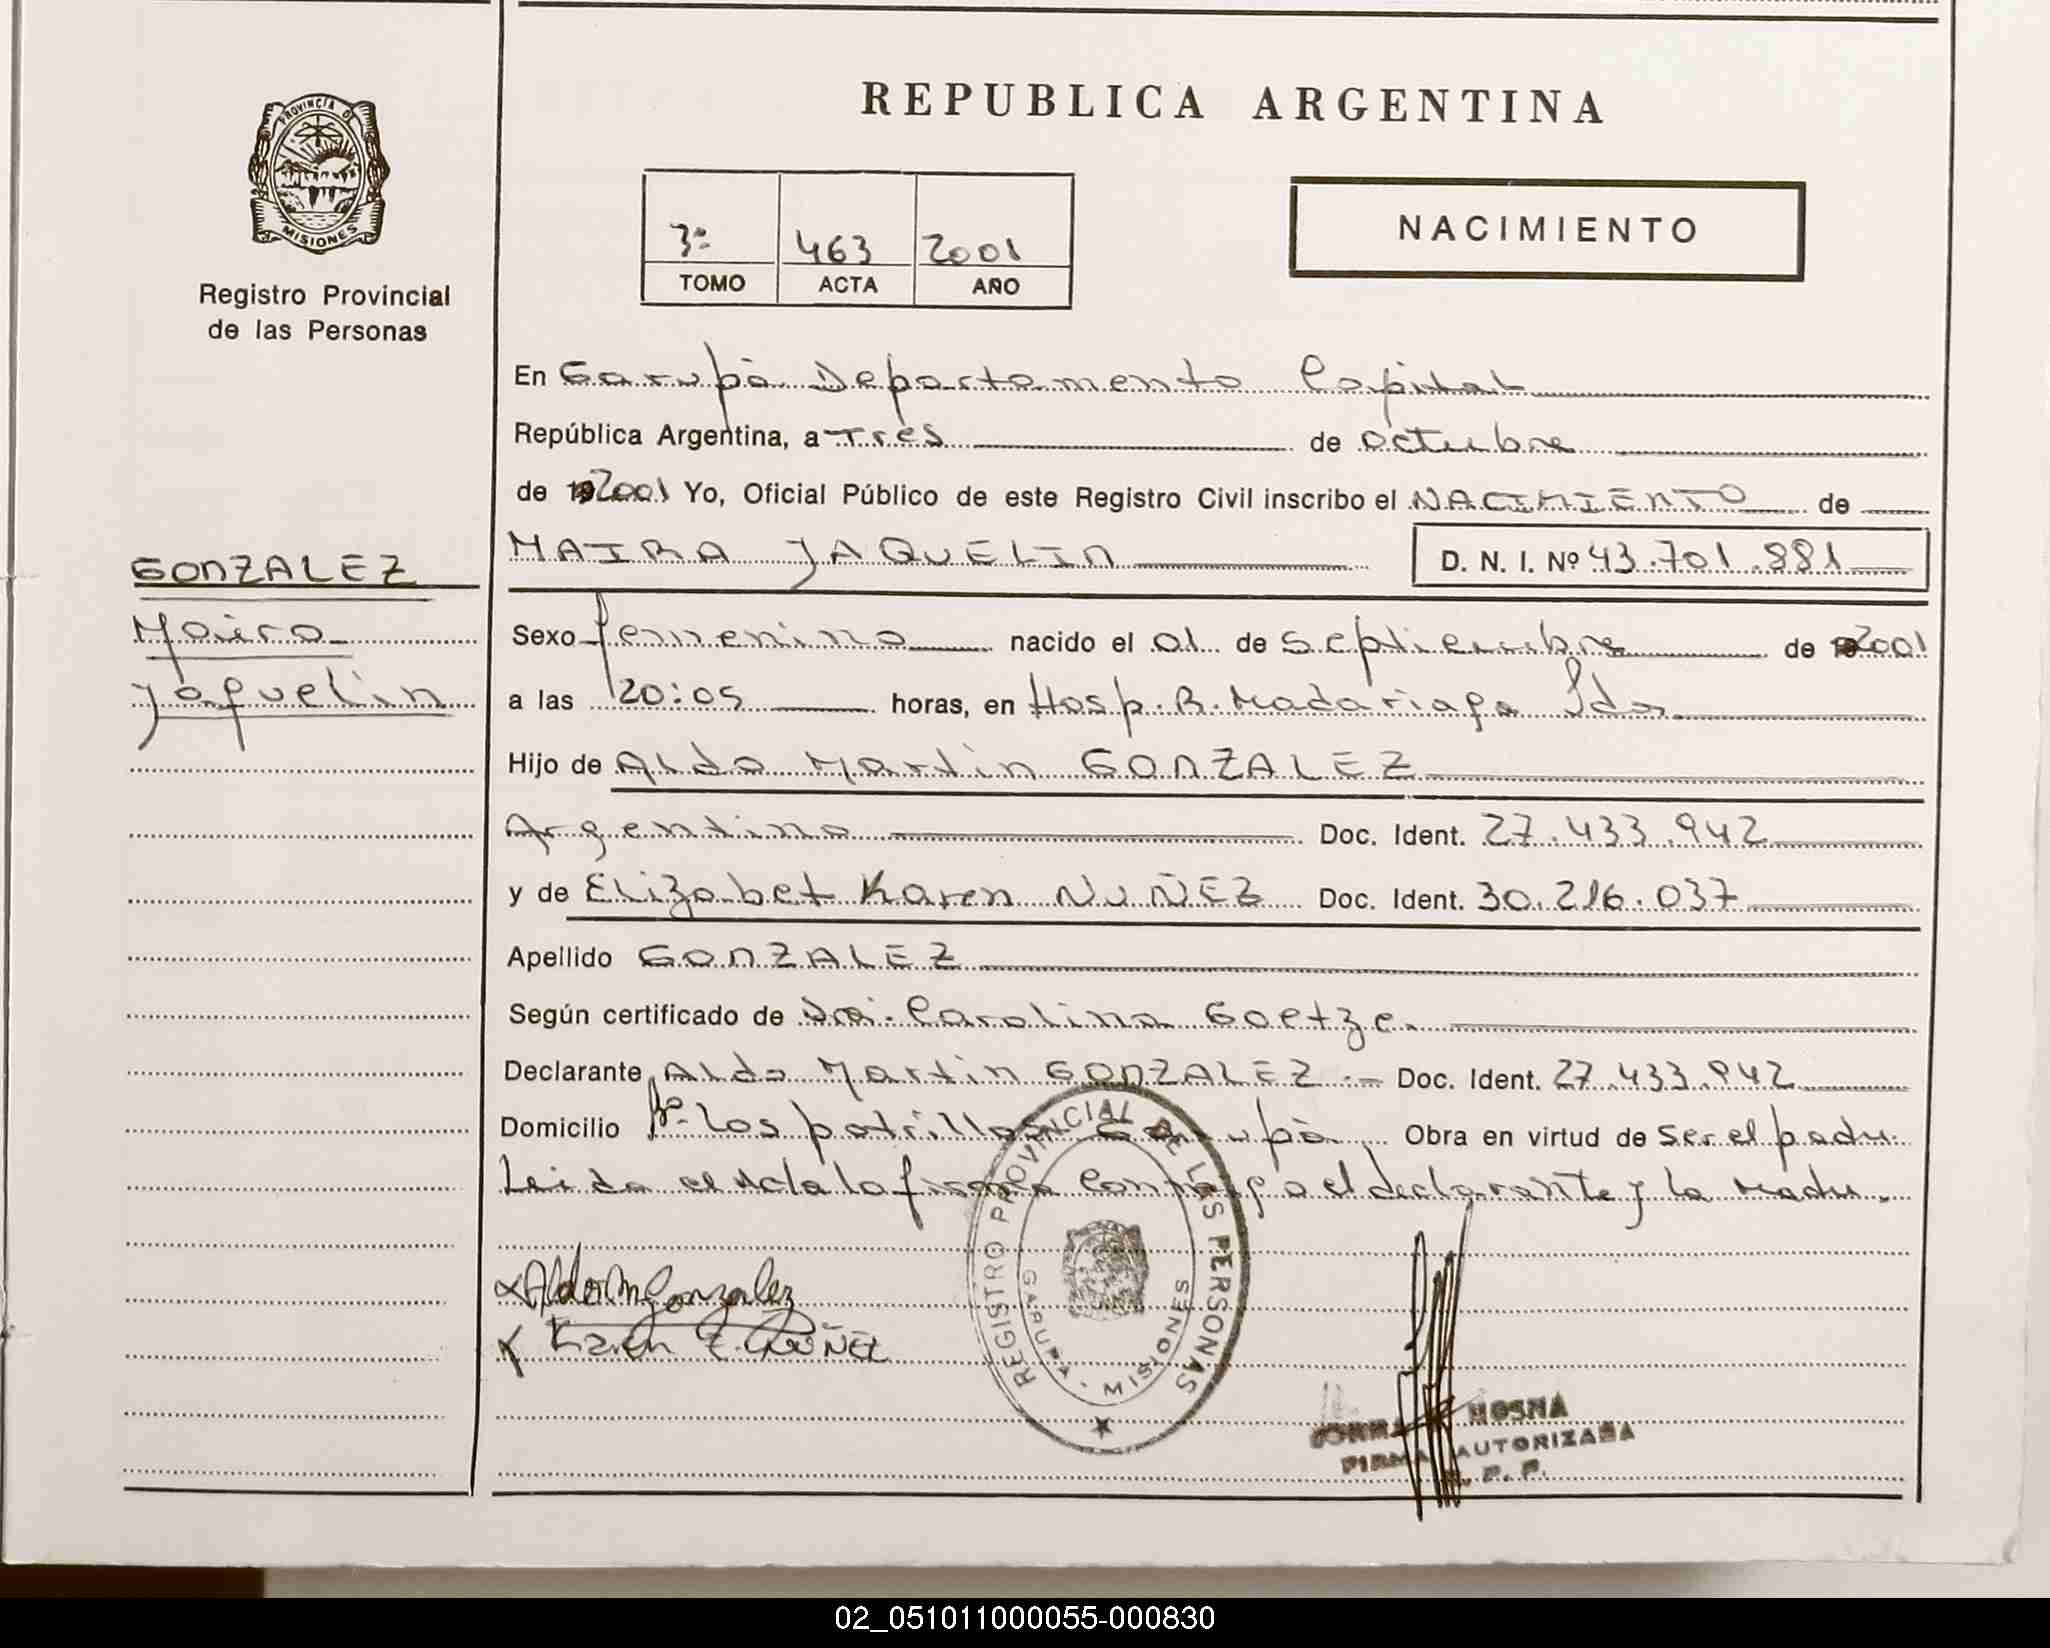 REPUBLICA ARGENTINA
PROVINCIA DE
MISIONES
Registro Provincial
de las Personas
3º 463 2001
TOMO ACTA AÑO
NACIMIENTO
En Garupà Departamento Capital
República Argentina, a Tres de octubre
de 2001 Yo, Oficial Público de este Registro Civil inscribo el NACIMIENTO de
MAIRA JAQUELIN D. N. I. Nº 43.701.881
GONZALEZ
Maira
Jaquelin
Sexo femenino nacido el 01 de septiembre de 2001
a las 20:05 horas, en Hosp. R. Madariaga Pdas
Hijo de Aldo Martin GONZALEZ
Argentino Doc. Ident. 27.433.942
y de Elizabet Karen NUÑEZ Doc. Ident. 30.216.037
Apellido GONZALEZ
Según certificado de Dra. Carolina Goetze.
Declarante Aldo Martin GONZALEZ Doc. Ident. 27.433.942
Domicilio Bº Los potrillos Garupà Obra en virtud de ser el padre
Leida el Acta la firman conmigo el declarante y la madre.
Aldo M Gonzalez
Karen E. NUÑEZ
REGISTRO PROVINCIAL DE LAS PERSONAS
GARUPA - MISIONES
MOSNA
FIRMA AUTORIZADA
R. P. P.
02_051011000055-000830